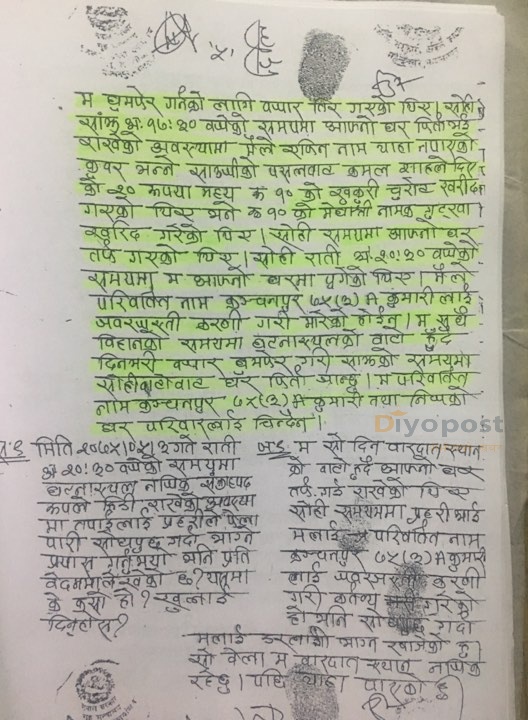 म घुमफेर गर्नको लागि वप्पार तिर गएको थिए। सोही
साँझ अं. १७:३० बजेको समयमा आफ्नो घर फिर्ता भई
राखेको अवस्थामा मैले नाम थाहा नपाएको
कुवर भन्ने साहुजीको पसलबाट कमल साहले दिए
को २० रुपैया मध्य रु १० को खुकुरी चुरोट खरीद
गरेको थिए भने रु १० को नामक गुट्खा
खरिद गरेको थिए। सोही समयमा आफ्नो घर
तर्फ गएको थिए। सोही राती अं. २०:३० बजेको
समयमा म आफ्नो घरमा पुगेको थिए। मैले
परिवर्तित नाम कञ्चनपुर ७५(३) म कुमारी लाई
जवरजस्ती करणी गरी मारेको होईन। म
विहानको समयमा घटनास्थलको वाटो हुँदै
दिनभरी वप्पार घुमफेर गरी साँझको समयमा
सोही बाटोबाट घर फिर्ता आन्छु। म परिवर्तित
नाम कञ्चनपुर ७५(३) म कुमारी तथा निजको
घर परिवारलाई चिन्दैन।
Diyopost
मिति २०७५।०५। गते राती
अं २०:३० बजेको समयमा
घटनास्थल नजिकै
रूपले हिंडी राखेको अवस्था
मा तपाईलाई प्रहरीले फेला
पारी सोधपुछ गर्दा भाग्ने
प्रयास गर्नुभयो भनि प्रति
वेदनमा लेखेको छ? यसमा
के कसो हो? खुलाई
दिनुहोस्?
म सो दिन वारदात स्थान
को बाटो हुँदै आफ्नो घर
तर्फ गई राखेको थिए
सोही समयमा प्रहरी आई
मलाई परिवर्तित नाम
कञ्चनपुर ७५(३) म कुमारी
लाई जवरजस्ती करणी
गरी कर्तव्य गरेको
हो भनि सोधपुछ गर्दा
मलाई डरलागी भाग्न खोजेको हु
सो वेला म वारदात स्थान नजिकै
रहेछु। थाहा पाएको छु